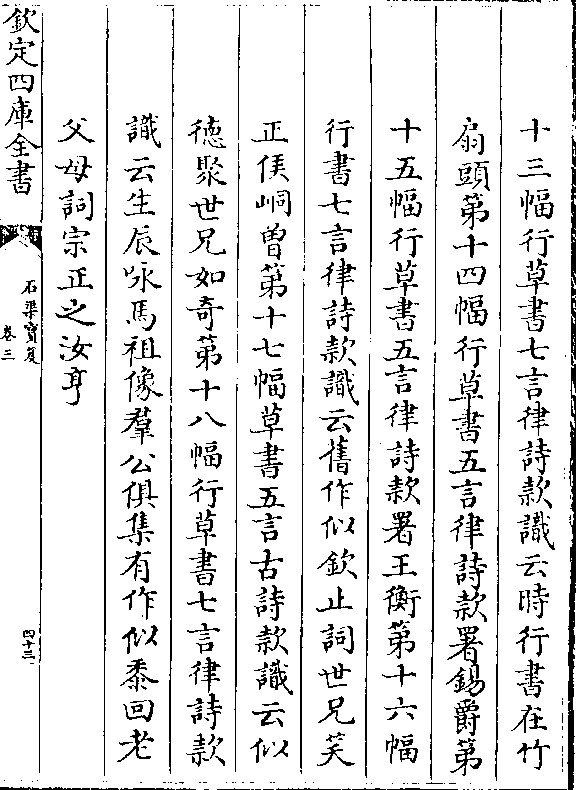 十三幅行草書七言律詩款識云時行書在竹
扇頭第十四幅行草書五言律詩款署錫爵第
十五幅行草書五言律詩款署王衡第十六幅
行書七言律詩款識云舊作似欽止詞世兄笑
正侯峒曽第十七幅草書五言古詩款識云似
徳聚世兄如奇第十八幅行草書七言律詩款
識云生辰咏馬祖像羣公俱集有作似黍回老
父母詞宗正之汝亨
欽定四庫全書
石渠寳笈
卷三
四十三